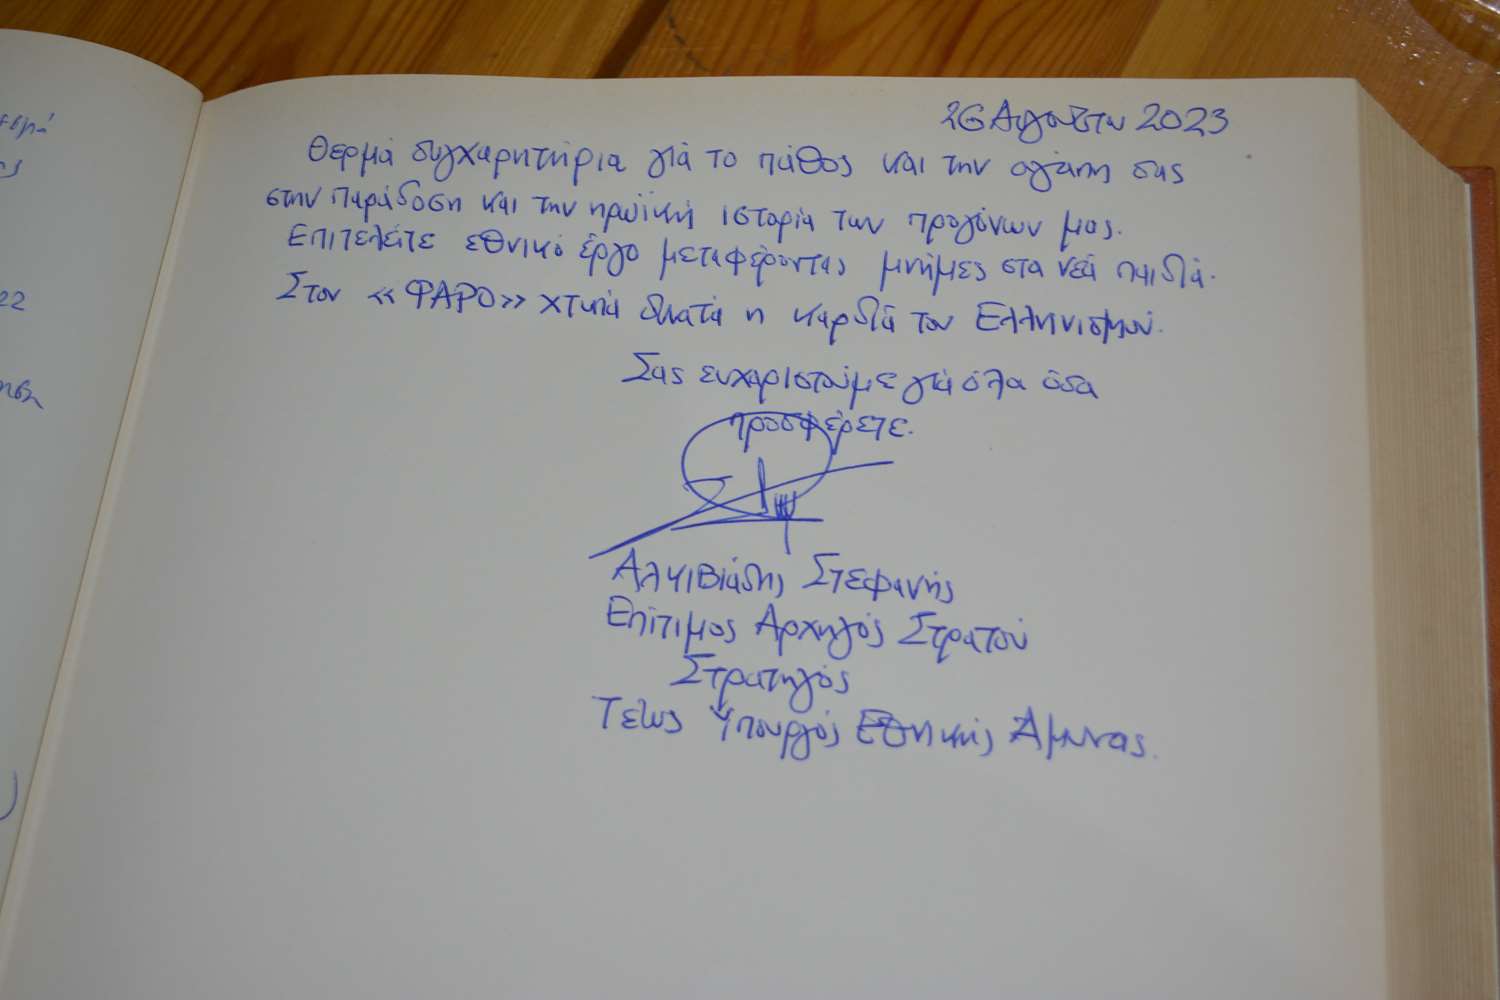 22
26 Αυγούστου 2023
Θερμά συγχαρητήρια γιά το πάθος και την αγάπη σας
στην παράδοση και την ηρωϊκή ιστορία των προγόνων μας.
Επιτελείτε εθνικό έργο μεταφέροντας μνήμες στα νέα παιδιά.
Στον «ΦΑΡΟ» χτυπά δυνατά η καρδιά του Ελληνισμού.
Σας ευχαριστούμε γιά όλα όσα
προσφέρετε.
Αλκιβιάδης Στεφανής
Επίτιμος Αρχηγός Στρατού
Στρατηγός
Τέως Υπουργός Εθνικής Άμυνας.